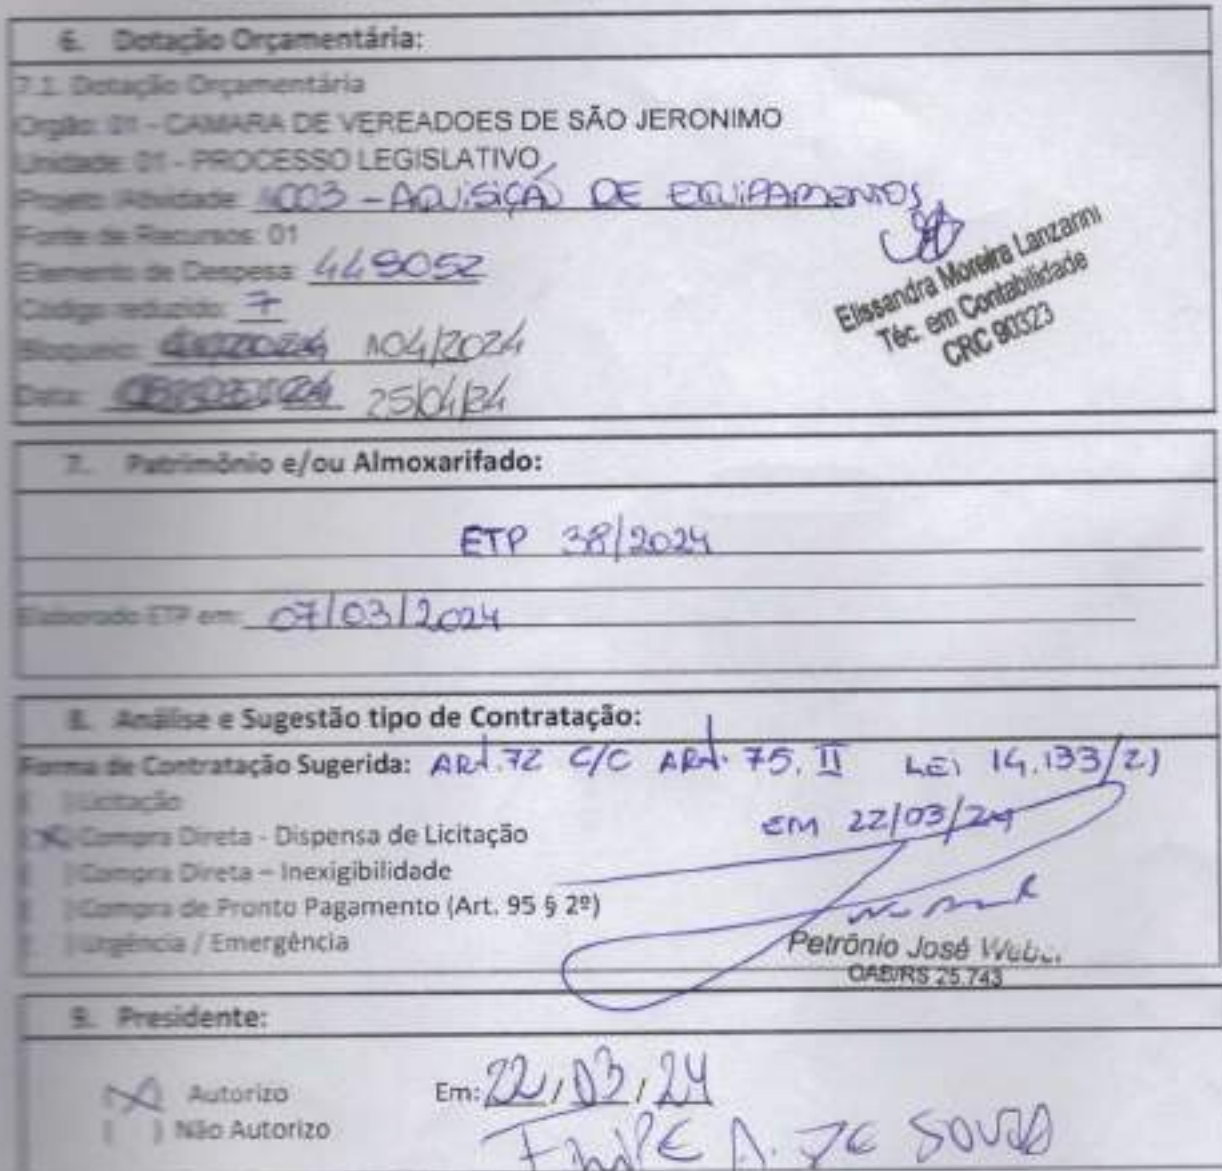 6. Dotação Orçamentária:
7.1. Dotação Orçamentária
Orgão: 01 - CAMARA DE VEREADOES DE SÃO JERONIMO
Unidade: 01 - PROCESSO LEGISLATIVO
Projeto /Atividade: 1003 - AQUISIÇÃO DE EQUIPAMENTOS
Fonte de Recursos: 01
Elemento de Despesa: 449052
Código reduzido: 7
Bloqueio: 104/2024
Data: 25/04/24
Elissandra Moreira Lanzarini
Téc. em Contabilidade
CRC 90323
7. Patrimônio e/ou Almoxarifado:
ETP 38/2024
Elaborado ETP em: 07/03/2024
8. Análise e Sugestão tipo de Contratação:
Forma de Contratação Sugerida: Art. 72 C/C Art. 75, II LEI 14.133/21
( ) Licitação
(X) Compra Direta - Dispensa de Licitação
( ) Compra Direta – Inexigibilidade
( ) Compra de Pronto Pagamento (Art. 95 § 2º)
( ) Urgência / Emergência
EM 22/03/24
Petrônio José Weber
OAB/RS 25.743
9. Presidente:
(X) Autorizo Em: 22/03/24
( ) Não Autorizo
FILIPE A. DE SOUZA